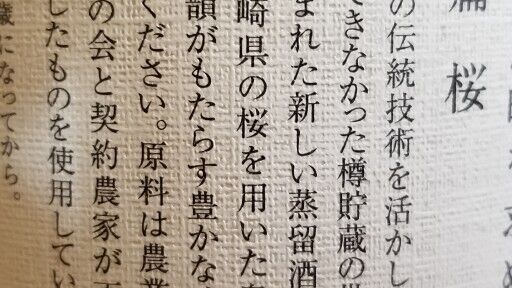 桜
の伝統技術を活かし
できなかった樽貯蔵の
まれた新しい蒸留酒
崎県の桜を用いた
韻がもたらす豊かな
ください。原料は農業
の会と契約農家が
したものを使用してい
歳になってから。